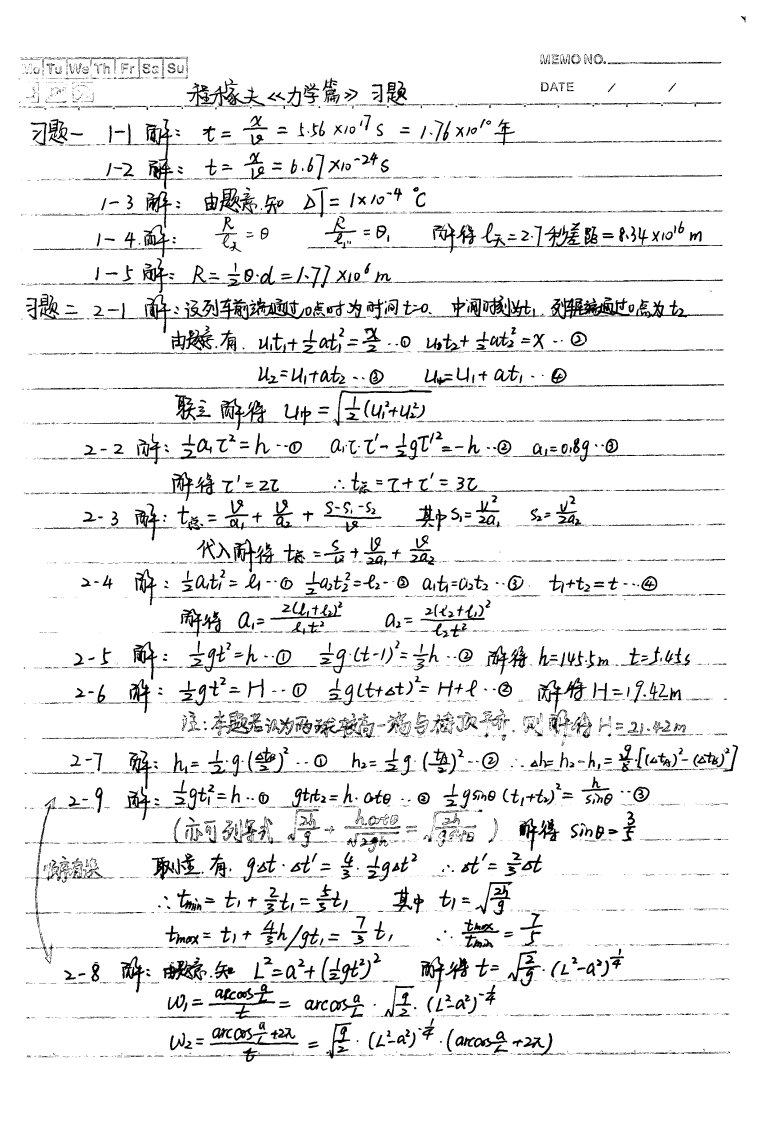 Mo Tu We Th Fr Sa Su
MEMO NO.
DATE / /
程稼夫《力学篇》习题
习题一 1-1 解: t = x/v = 5.56×10¹⁷ s = 1.76×10¹⁰ 年
1-2 解: t = x/v = 6.67×10⁻²⁴ s
1-3 解: 由题意知 ΔT = 1×10⁻⁴ ℃
1-4 解: = θ = θ₁ 解得 = 2.7 秒差距 = 8.34×10¹⁶ m
1-5 解: R = ½θ·d = 1.77×10⁶ m
习题二 2-1 解: 设列车前端通过O点时为时间 t=0. 中间时刻为t₁, 通过O点为 t₂
由题意.有. u₁t₁+½at₁²=x/2 ··① u₁t₂+½at₂²=X ··②
u₂=u₁+at₂ ··③ u中=u₁+at₁ ··④
联立 解得 u中=√(½(u₁²+u₂²))
2-2 解: ½a₁τ²=h ··① a₁τ·τ'-½gτ'²=-h ··② a₁=0.8g ··③
解得 τ'=2τ ∴ t总=τ+τ'=3τ
2-3 解: t总=v/a₁+v/a₂+(S-S₁-S₂)/v 其中 S₁=v²/2a₁ S₂=v²/2a₂
代入解得 t总=S/v+v/2a₁+v/2a₂
2-4 解: ½a₁t₁²=l₁ ··① ½a₂t₂²=l₂ ··② a₁t₁=a₂t₂ ··③ t₁+t₂=t ··④
解得 a₁=2(l₁+l₂)²/l₁t² a₂=2(l₂+l₁)²/l₂t²
2-5 解: ½gt²=h ··① ½g·(t-1)²=⅓h ··② 解得 h=145.5m t=5.45s
2-6 解: ½gt²=H ··① ½g(t+Δt)²=H+l ··② 解得 H=19.42m
注:本题若认为两球较高一端与楼顶平齐, 则解得 H=21.42m
2-7 解: h₁=½·g·(Δt_B/2)² ··① h₂=½g·(Δt_A/2)² ··② ∴Δh=h₂-h₁=g/8·[(Δt_A)²-(Δt_B)²]
2-9 解: ½gt₁²=h ··① gt₁t₂=h·cotθ ··② ½gsinθ(t₁+t₂)²=h/sinθ ··③
(亦可列等式 √(2h/g)+hcotθ/√(2gh)=√(2h/gsin²θ)) 解得 sinθ=3/5
顺序有误 取小量.有. gΔt·Δt'=4/3·½gΔt² ∴Δt'=⅔Δt
∴tmin=t₁+⅔t₁=5/3t₁ 其中 t₁=√(2h/g)
tmax=t₁+4/3h/gt₁=7/3t₁ ∴tmax/tmin=7/5
2-8 解: 由题意.知 L²=a²+(½gt²)² 解得 t=√(2/g)·(L²-a²)^¼
ω₁=arccos(a/L)/t=arccos(a/L)·√(g/2)·(L²-a²)^-¼
ω₂=(arccos(a/L)+2π)/t=√(g/2)·(L²-a²)^-¼·(arccos(a/L)+2π)